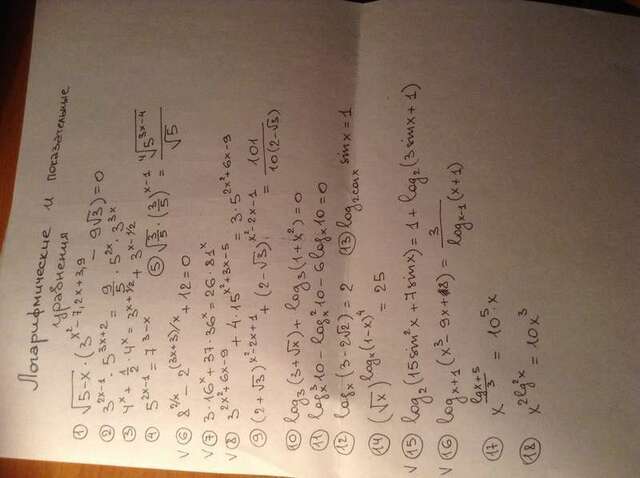 Логарифмические и показательные
уравнения
① √(5-x) · (3^(x²-7,2x+3,9) - 9√3) = 0
② 3^(2x-1) · 5^(3x+2) = 9/5 · 5^(2x) · 3^(3x)
③ 4^x + 1/2 · 4^x = 3^(x+1/2) + 3^(x-1/2)
④ 5^(2x-1) = 7^(3-x) ⑤ √(3/5) · (3/5)^(x-1) = ⁴√(5^(3x-4)) / √5
√ ⑥ 8^(2/x) - 2^((3x+3)/x) + 12 = 0
√ ⑦ 3·16^x + 37·36^x = 26·81^x
√ ⑧ 3^(2x²+6x-9) + 4·15^(x²+3x-5) = 3·5^(2x²+6x-9)
⑨ (2+√3)^(x²-2x+1) + (2-√3)^(x²-2x-1) = 101/(10(2-√3))
⑩ log₃(3+√x) + log₃(1+x²) = 0
⑪ logₓ³10 - logₓ²10 - 6logₓ10 = 0
⑫ logₓ(3-2√2) = 2 ⑬ log_(2cosx) sinx = 1
⑭ (√x)^(logₓ(1-x)⁴) = 25
√ ⑮ log₂(15sin²x + 7sinx) = 1 + log₂(3sinx + 1)
√ ⑯ log_(x+1)(x³-9x+8) = 3/(log_(x-1)(x+1))
⑰ x^((lgx+5)/3) = 10⁵·x
⑱ x^(2lg²x) = 10x³